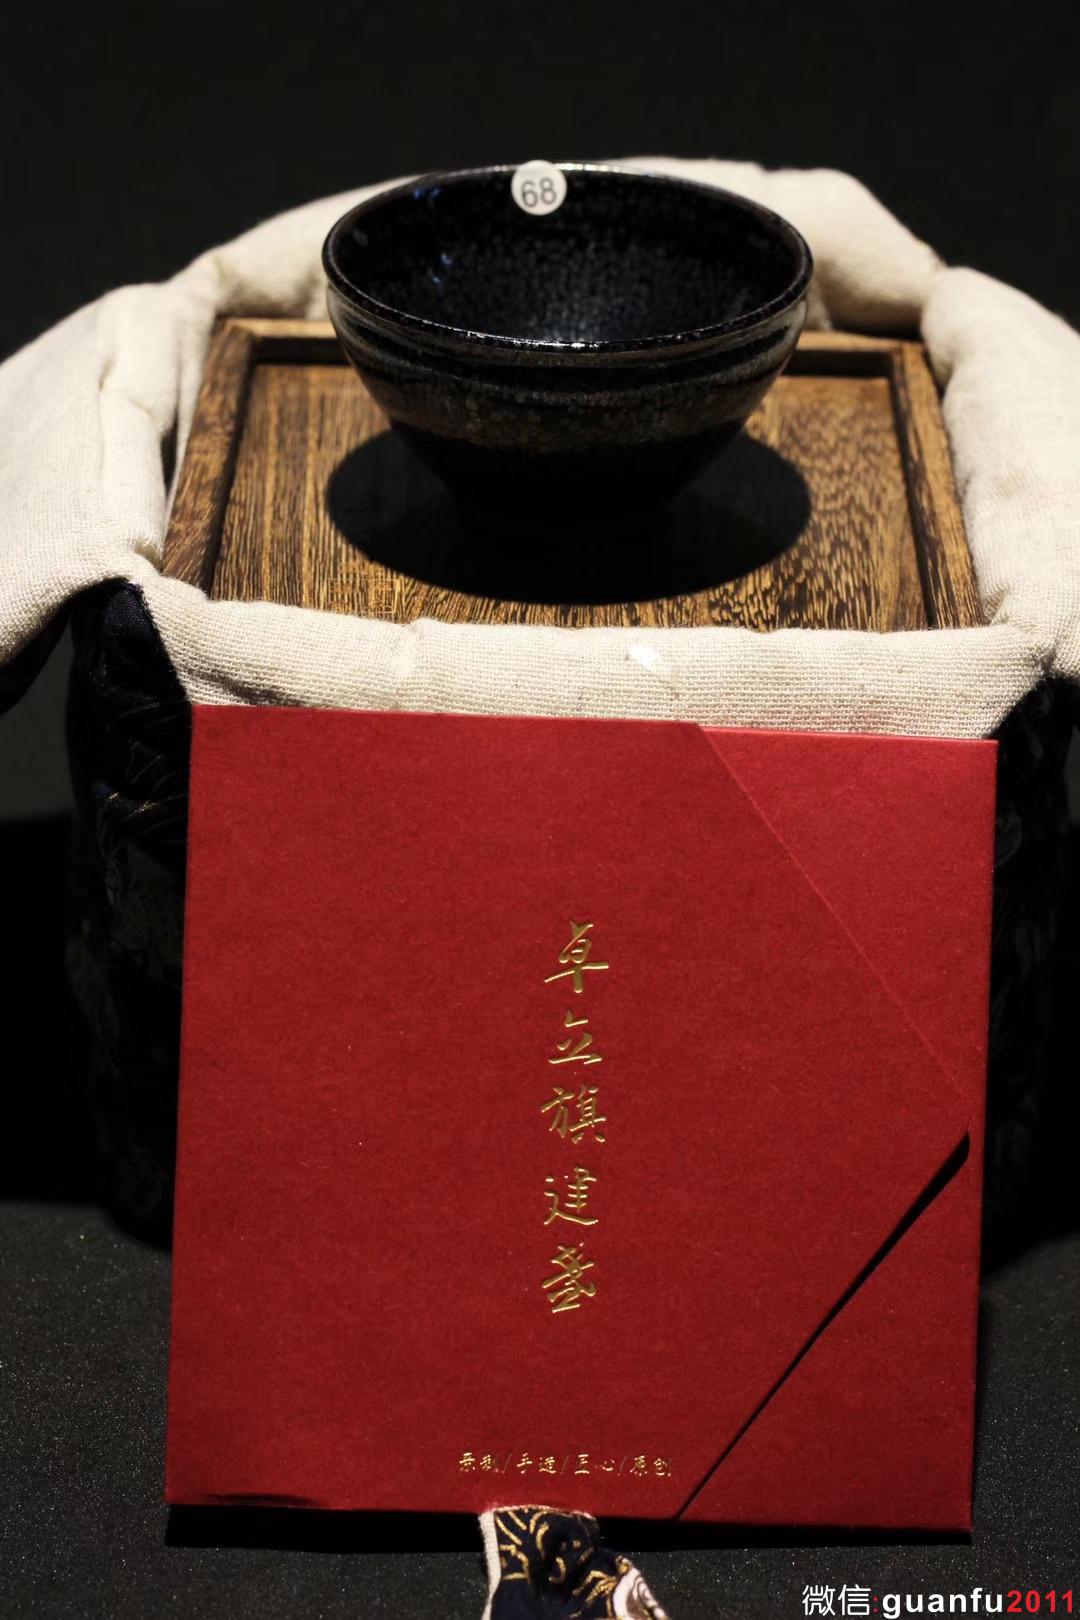 68
卓立旗建盏
亲制/手造/匠心/原创
微信:guanfu2011